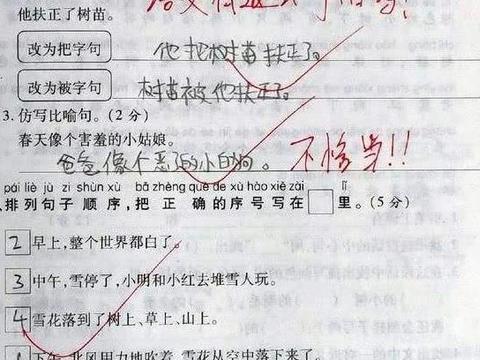 他扶正了树苗。
改为把字句 他把树苗扶正了。
改为被字句 树苗被他扶正了。
3. 仿写比喻句。(2 分)
春天像个害羞的小姑娘。
爸爸像个恶了的小白狗。 不恰当!!
pái liè jù zi shùn xù bǎ zhèng què de xù hào xiě zài lǐ
排列句子顺序,把正确的序号写在 里。(5 分)
2 早上,整个世界都白了。
3 中午,雪停了,小明和小红去堆雪人玩。
4 雪花落到了树上、草上、山上。
1 下午,北风用力地吹着,雪花从空中落下来了。